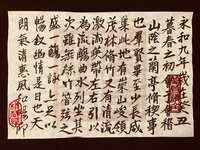 永和九年歲在癸丑
暮春之初會于會稽
山陰之蘭亭脩禊事
也群賢畢至少長咸
集此地有崇山峻領
茂林脩竹又有清流
激湍映帶左右引以
為流觴曲水列坐其
次雖無絲竹管弦之
盛一觴一詠亦足以
暢敘幽情是日也天
朗氣清惠風和暢仰